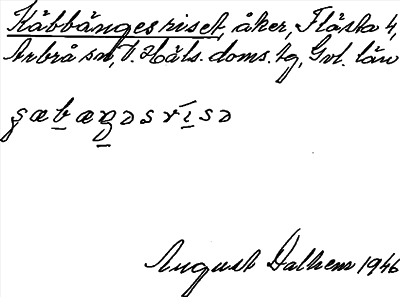 Käbbängesriset, åker, Flästa 4,
Arbrå sn, V. Häls. doms. tg, Gvl. län
August Dalhem 1946